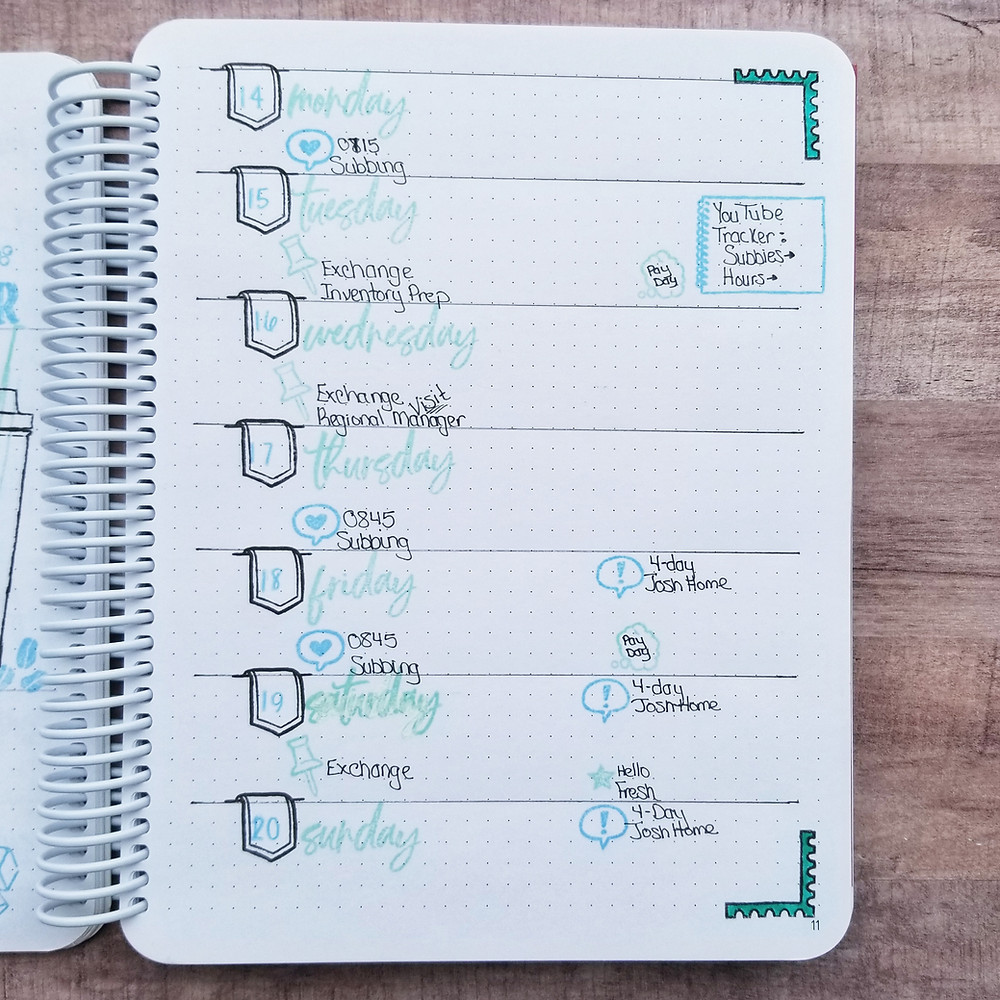 14 monday
0815
Subbing
15 tuesday
YouTube
Tracker:
Subbies→
Hours→
Exchange
Inventory Prep
Pay
Day
16 wednesday
Exchange
Regional Manager visit
17 thursday
0845
Subbing
18 friday
4-day
Josh Home
0845
Subbing
Pay
Day
19 saturday
4-day
Josh Home
Exchange
Hello
Fresh
20 sunday
4-Day
Josh Home
11
8
R